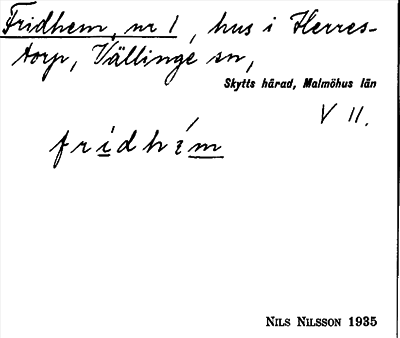 Fridhem, nr 1, hus i Herres-
torp, Vällinge sn,
Skytts härad, Malmöhus län
V 11.
fri̱dhém
NILS NILSSON 1935